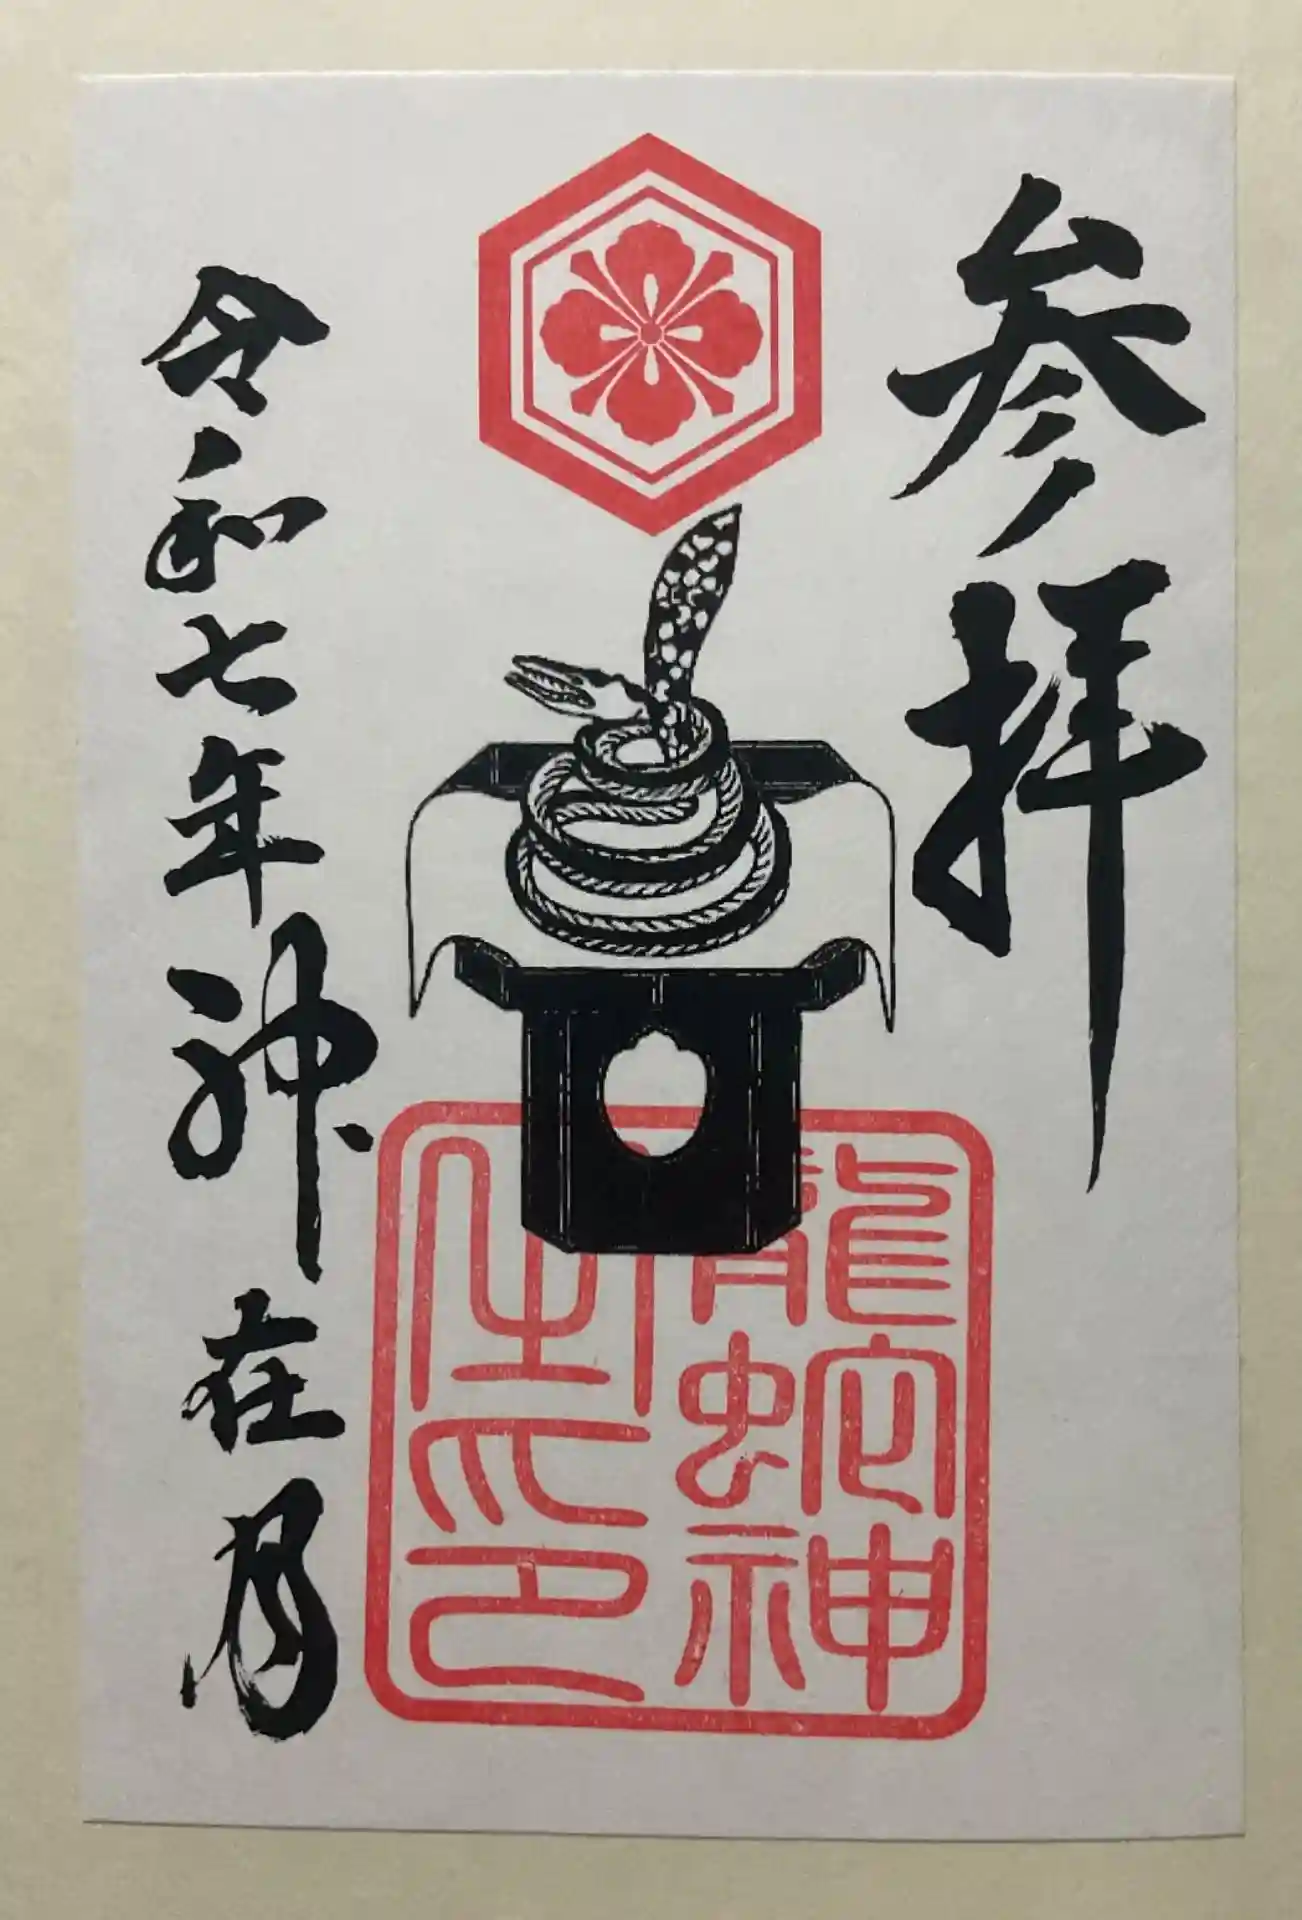 参拝
龍蛇神
之印
令和七年神在月